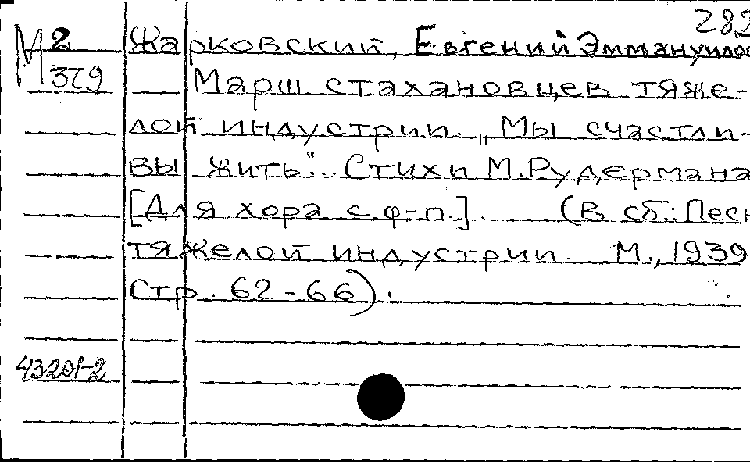 282
М 2 Жарковский, Евгений Эммануилов
379 Марш стахановцев тяже-
лой индустрии „Мы счастли-
вы жить". Стихи М.Рудермана
[Для хора с ф-п.]. (В сб.: Песн
тяжелой индустрии М., 1939
Стр. 62-66).
43201-2